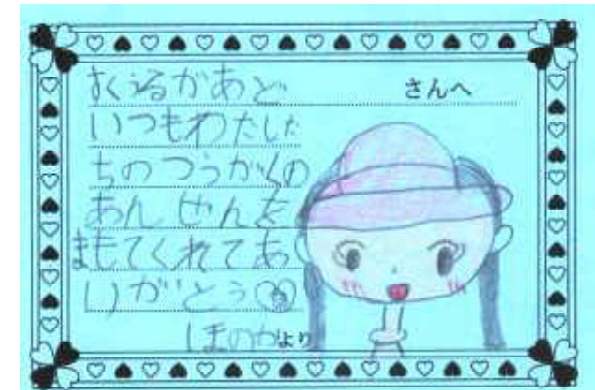 すくうるがあど さんへ
いつもわたした
ちのつうがくの
あんぜんを
まもてくれてあ
りがとう
ほのかより